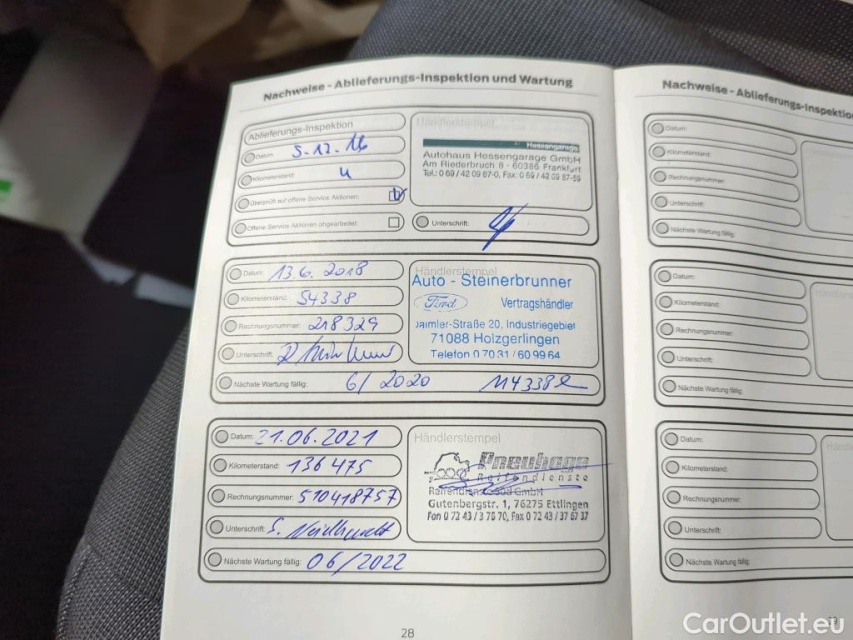 Nachweise - Ablieferungs-Inspektion und Wartung
Ablieferungs-Inspektion
Datum: 5.12.16
Kilometerstand: 4
Überprüft auf offene Service Aktionen:
Offene Service Aktionen abgearbeitet:
Händlerstempel
Hessengarage
Autohaus Hessengarage GmbH
Am Riederbruch 8 - 60386 Frankfurt
Tel.: 0 69 / 42 09 87-0, Fax: 0 69 / 42 09 87-59
Unterschrift:
Datum: 13.6.2018
Kilometerstand: 54338
Rechnungsnummer: 218329
Unterschrift:
Nächste Wartung fällig: 6/2020 114338
Händlerstempel
Auto - Steinerbrunner
Ford Vertragshändler
Daimler-Straße 20, Industriegebiet
71088 Holzgerlingen
Telefon 0 70 31 / 60 99 64
Datum: 21.06.2021
Kilometerstand: 136475
Rechnungsnummer: 510418757
Unterschrift: S.
Nächste Wartung fällig: 06/2022
Händlerstempel
Pneuhage
Reifendienste
GmbH
Gutenbergstr. 1, 76275 Ettlingen
Fon 0 72 43 / 3 76 70, Fax 0 72 43 / 37 67 37
28
Nachweise - Ablieferungs-Inspektio
Datum:
Kilometerstand:
Rechnungsnummer:
Unterschrift:
Nächste Wartung fällig:
Datum:
Kilometerstand:
Rechnungsnummer:
Unterschrift:
Nächste Wartung fällig:
Datum:
Kilometerstand:
Rechnungsnummer:
Unterschrift:
Nächste Wartung fällig:
CarOutlet.eu